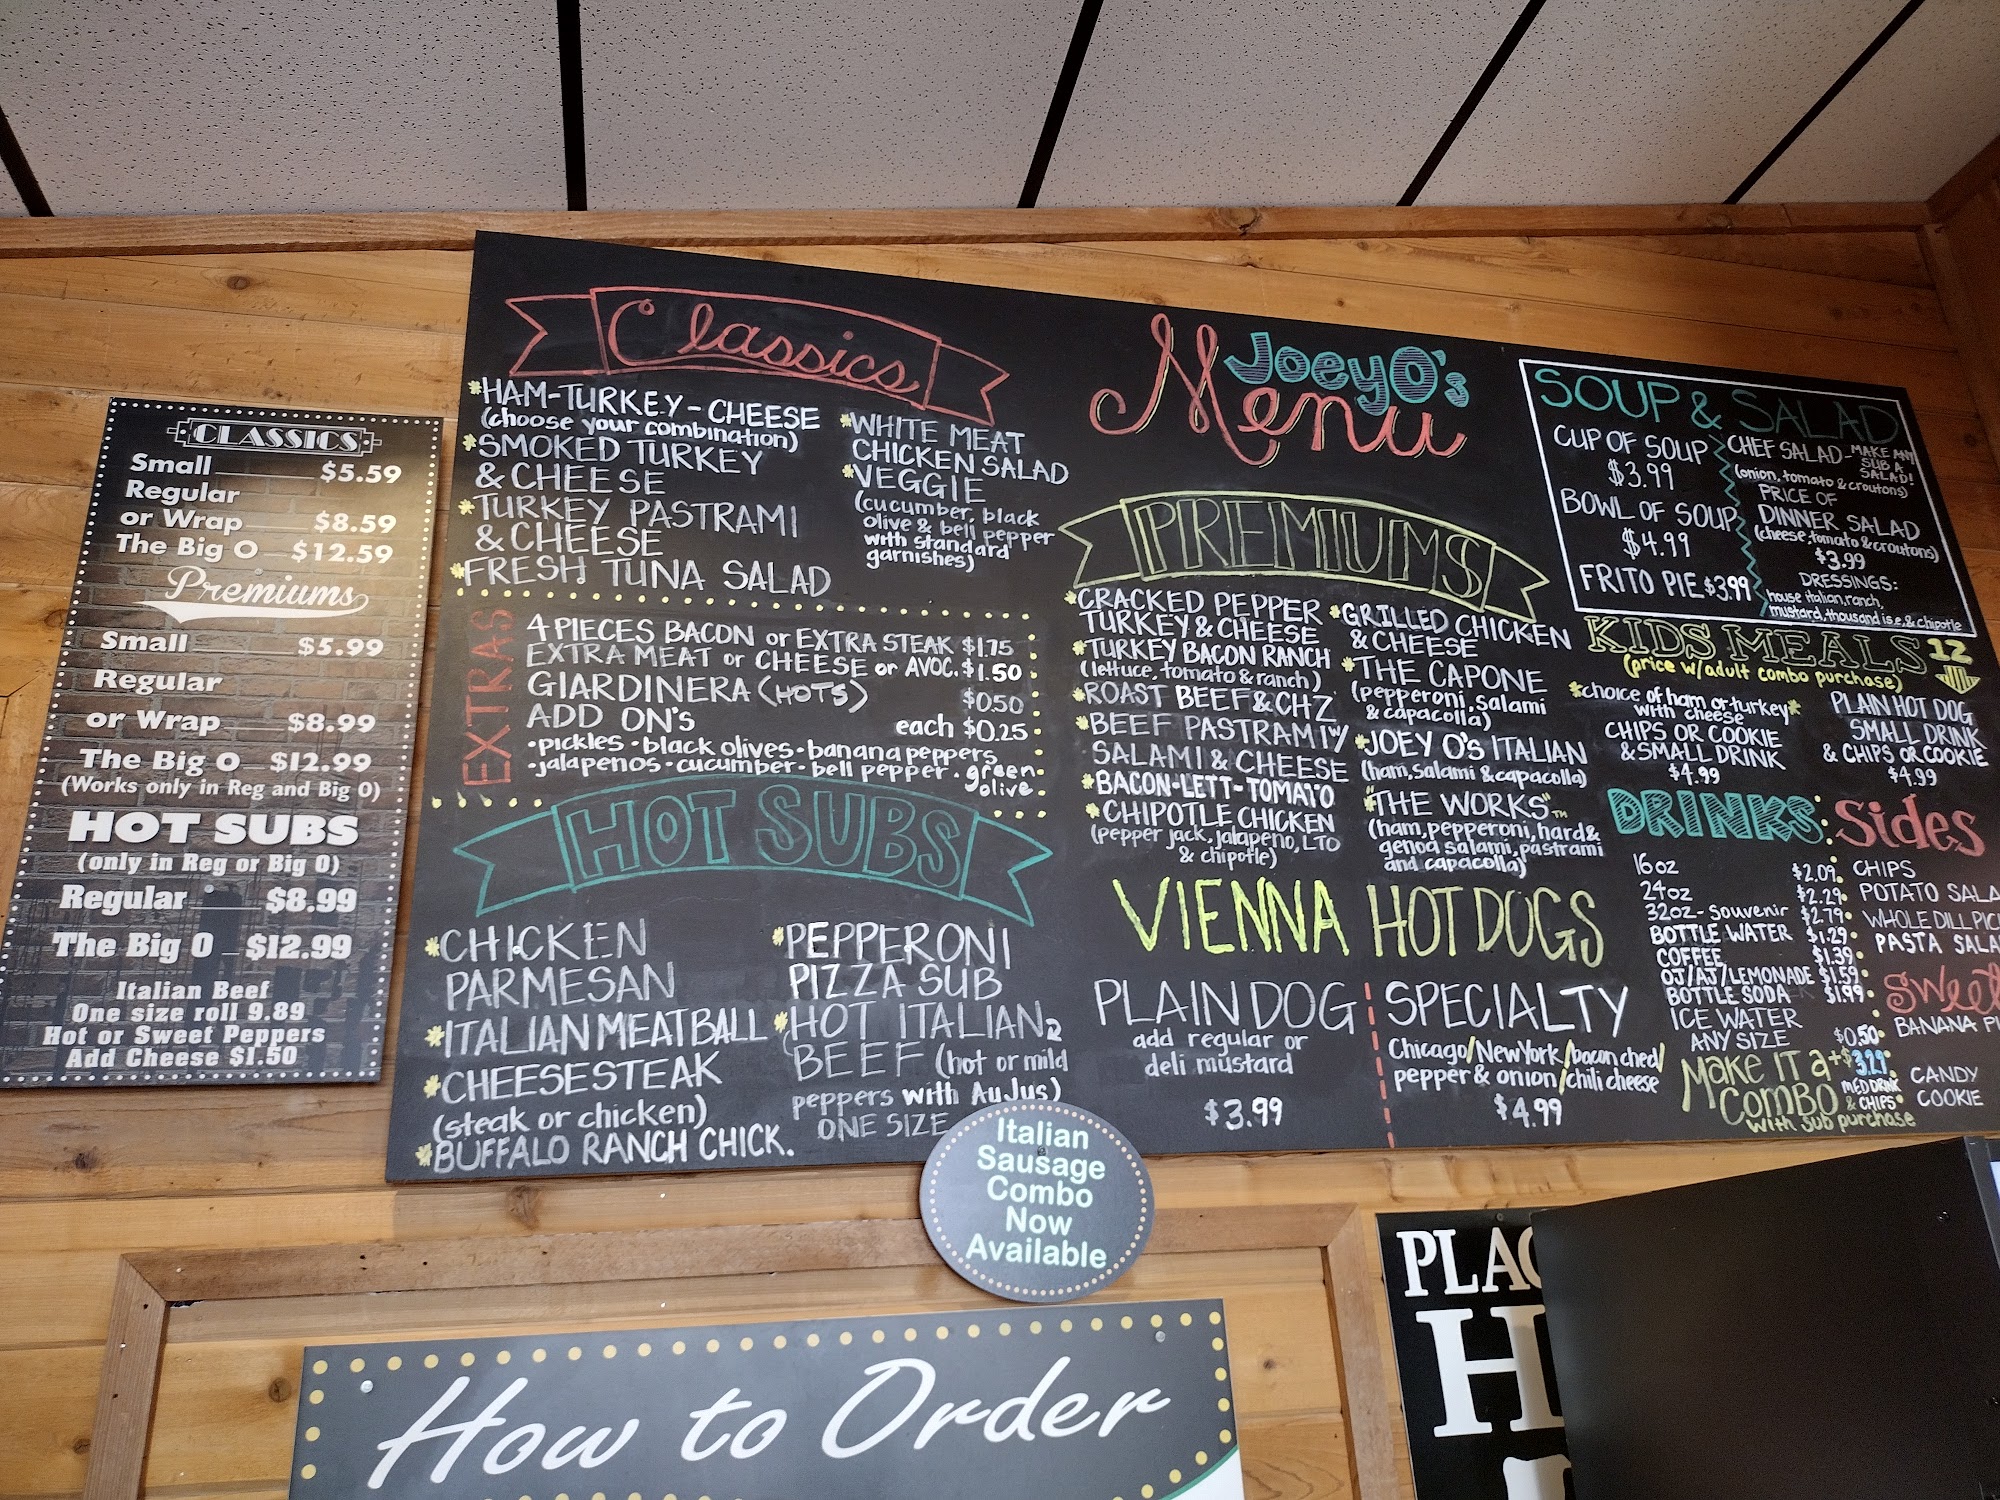 CLASSICS
Small $5.59
Regular
or Wrap $8.59
The Big O $12.59
Premiums
Small $5.99
Regular
or Wrap $8.99
The Big O $12.99
(Works only in Reg and Big O)
HOT SUBS
(only in Reg or Big O)
Regular $8.99
The Big O $12.99
Italian Beef
One size roll 9.89
Hot or Sweet Peppers
Add Cheese $1.50
Classics
*HAM-TURKEY-CHEESE
(choose your combination)
*SMOKED TURKEY
& CHEESE
*TURKEY PASTRAMI
& CHEESE
*FRESH TUNA SALAD
*WHITE MEAT
CHICKEN SALAD
*VEGGIE
(cucumber, black
olive & bell pepper
with standard
garnishes)
EXTRAS
4 PIECES BACON or EXTRA STEAK $1.75
EXTRA MEAT or CHEESE or AVOC. $1.50
GIARDINERA (HOTS) $0.50
ADD ON'S each $0.25
•pickles •black olives •banana peppers
•jalapenos •cucumber •bell pepper •green
olive
HOT SUBS
*CHICKEN
PARMESAN
*ITALIAN MEATBALL
*CHEESESTEAK
(steak or chicken)
*BUFFALO RANCH CHICK.
*PEPPERONI
PIZZA SUB
*HOT ITALIAN
BEEF (hot or mild
peppers with AuJus)
ONE SIZE
JoeyO's
Menu
PREMIUMS
*CRACKED PEPPER
TURKEY & CHEESE
*TURKEY BACON RANCH
(lettuce, tomato & ranch)
*ROAST BEEF & CHZ
*BEEF PASTRAMI w/
SALAMI & CHEESE
*BACON-LETT-TOMATO
*CHIPOTLE CHICKEN
(pepper jack, jalapeno, LTO
& chipotle)
*GRILLED CHICKEN
& CHEESE
*THE CAPONE
(pepperoni, salami
& capacolla)
*JOEY O'S ITALIAN
(ham, salami & capacolla)
"THE WORKS"™
(ham, pepperoni, hard &
genoa salami, pastrami
and capacolla)
VIENNA HOT DOGS
PLAIN DOG
add regular or
deli mustard
$3.99
SPECIALTY
Chicago/New York/bacon ched/
pepper & onion/chili cheese
$4.99
SOUP & SALAD
CUP OF SOUP
$3.99
BOWL OF SOUP
$4.99
FRITO PIE $3.99
CHEF SALAD - MAKE ANY
SUB A
SALAD!
(onion, tomato & croutons)
PRICE OF
DINNER SALAD
(cheese, tomato & croutons)
$3.99
DRESSINGS:
house italian, ranch,
mustard, thousand is.e. & chipotle
KIDS MEALS 12
(price w/adult combo purchase)
*choice of ham or turkey*
with cheese
CHIPS OR COOKIE
& SMALL DRINK
$4.99
PLAIN HOT DOG
SMALL DRINK
& CHIPS OR COOKIE
$4.99
DRINKS
16oz $2.09
24oz $2.29
32oz-Souvenir $2.79
BOTTLE WATER $1.29
COFFEE $1.39
OJ/AJ/LEMONADE $1.59
BOTTLE SODA $1.99
ICE WATER
ANY SIZE $0.50
Make it a
Combo
+$3.29
MED DRINK
& CHIPS
with sub purchase
Sides
CHIPS
POTATO SALA
WHOLE DILL PIC
PASTA SALA
Sweet
BANANA P
CANDY
COOKIE
Italian
Sausage
Combo
Now
Available
How to Order
PLAC
H